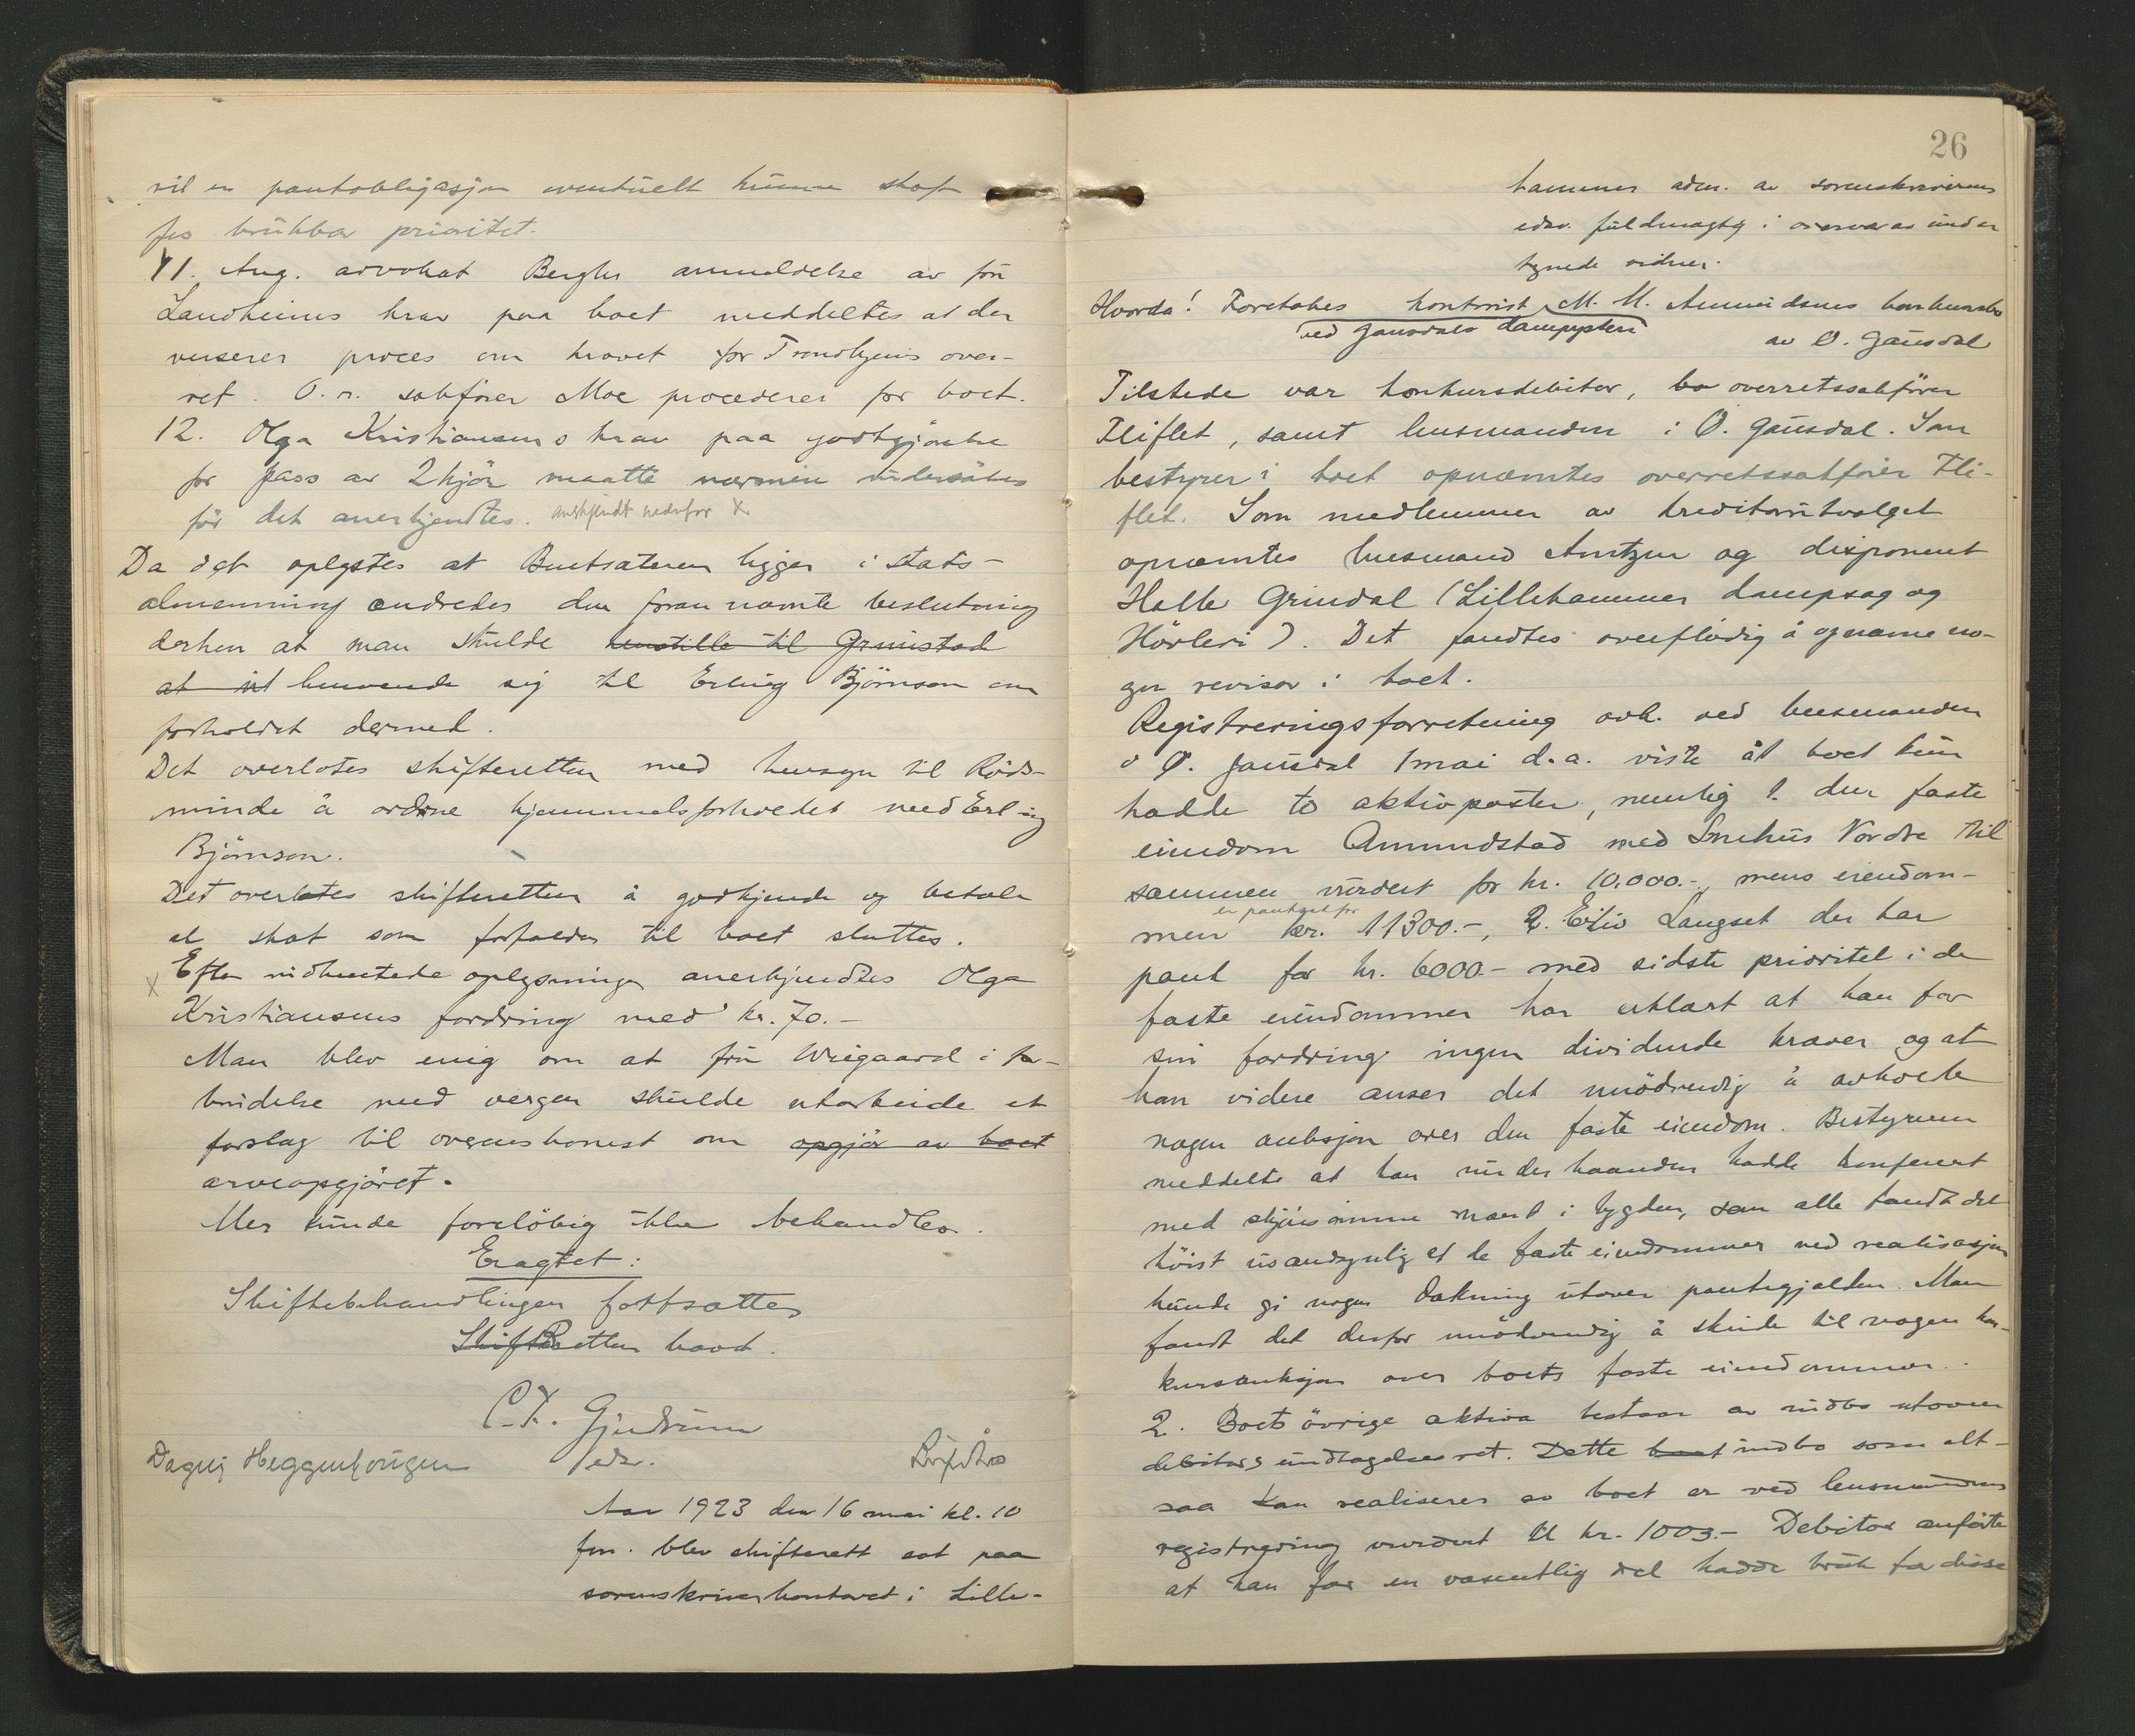 vil en pantobligasjon eventuelt kunne skaf
fes brukbar prioritet.
11. Ang. advokat Berghs anmeldelse av frü
Landheims krav paa boet meddeltes at der
verserer proces om kravet for Trondhjems over-
ret. O.r. sakfører Moe procederer for boet.
12. Olga Kristiansens krav paa godtgjørelse
for pass av 2 kjör maatte nærmere undersökes
för det anerkjendtes. anerkjendt nedenfor X
Da det oplystes at Buetsæteren ligger i stats-
almenning ændredes den foran nævnte beslutning
derhen at man skulde henstille til Grimstad
at henvende sig til Erling Björnson om
forholdet dermed.
Det overlotes skifteretten med hensyn til Röds-
minde å ordne hjemmelsforholdet med Erling
Björnson.
Det overlotes skifteretten å godkjende og betale
al skat som forfalder til boet sluttes.
X Efter indhentede oplysninger anerkjendtes Olga
Kristiansens fordring med kr. 70.-
Man blev enig om at frü Wiegaard i for-
bindelse med vergen skulde utarbeide et
forslag til overenskomst om opgjör av boet
arveopgjöret.
Mer kunde foreløbig ikke behandles.
Eragtet:
Skiftebehandlingen fortsættes
Skifteretten hævet.
C. F. Gjerdrum
edsv.
Dagny Heggenhougen
Aar 1923 den 16 mai kl. 10
fm. blev skifterett sat paa
sorenskriverkontoret i Lille-
26
hammer adm. av sorenskriverens
edsv. fuldmægtig i overvær av under
tegnede vidner.
Hvorda! Foretokes kontorist M. M. Amundsens konkursbo
ved Gausdals dampysteri av Ö. Gausdal
Tilstede var konkursdebitor, overretssakförer
Fliflet, samt lensmanden i Ö. Gausdal. Som
bestyrer i boet opnævntes overretssakförer Fli-
flet. Som medlemmer av kreditorutvalget
opnævntes lensmand Arntzen og disponent
Halle Grindal (Lillehammer dampsag og
Hövleri). Det fandtes overflödig å opnævne no-
gen revisor i boet.
Registreringsforretning avh. ved lensmanden
i Ö. Gausdal 1 mai d.a. viste at boet kun
hadde to aktivposter, nemlig 1. den faste
eiendom Amundstad med Snehus Nordre til
sammen vurdert for kr. 10.000.-, mens eiendom-
men er pantsat for kr. 11300.-, 2. Eiliv Langset der har
pant for kr. 6000.- med sidste prioritet i de
faste eiendommer har erklært at han for
sin fordring ingen dividende kræver og at
han videre anser det unödvendig å avholde
nogen auksjon over den faste eiendom. Bestyreren
meddelte at han under haanden hadde konferert
med skjönsomme mænd i bygden, som alle fandt det
höist usandsynlig at de faste eiendommer ved realisasjon
kunde gi nogen dækning utover pantegjelden. Man
fandt det derfor unödvendig å skride til nogen kon-
kursauksjon over boets faste eiendommer.
2. Boets övrige aktiva bestaar av indbo utover
debitors undtagelsesret. Dette boet indbo som alt-
saa kan realiseres av boet er ved lensmandens
registrering vurdert til kr. 1003.- Debitor anförte
at han for en væsentlig del hadde bruk for disse